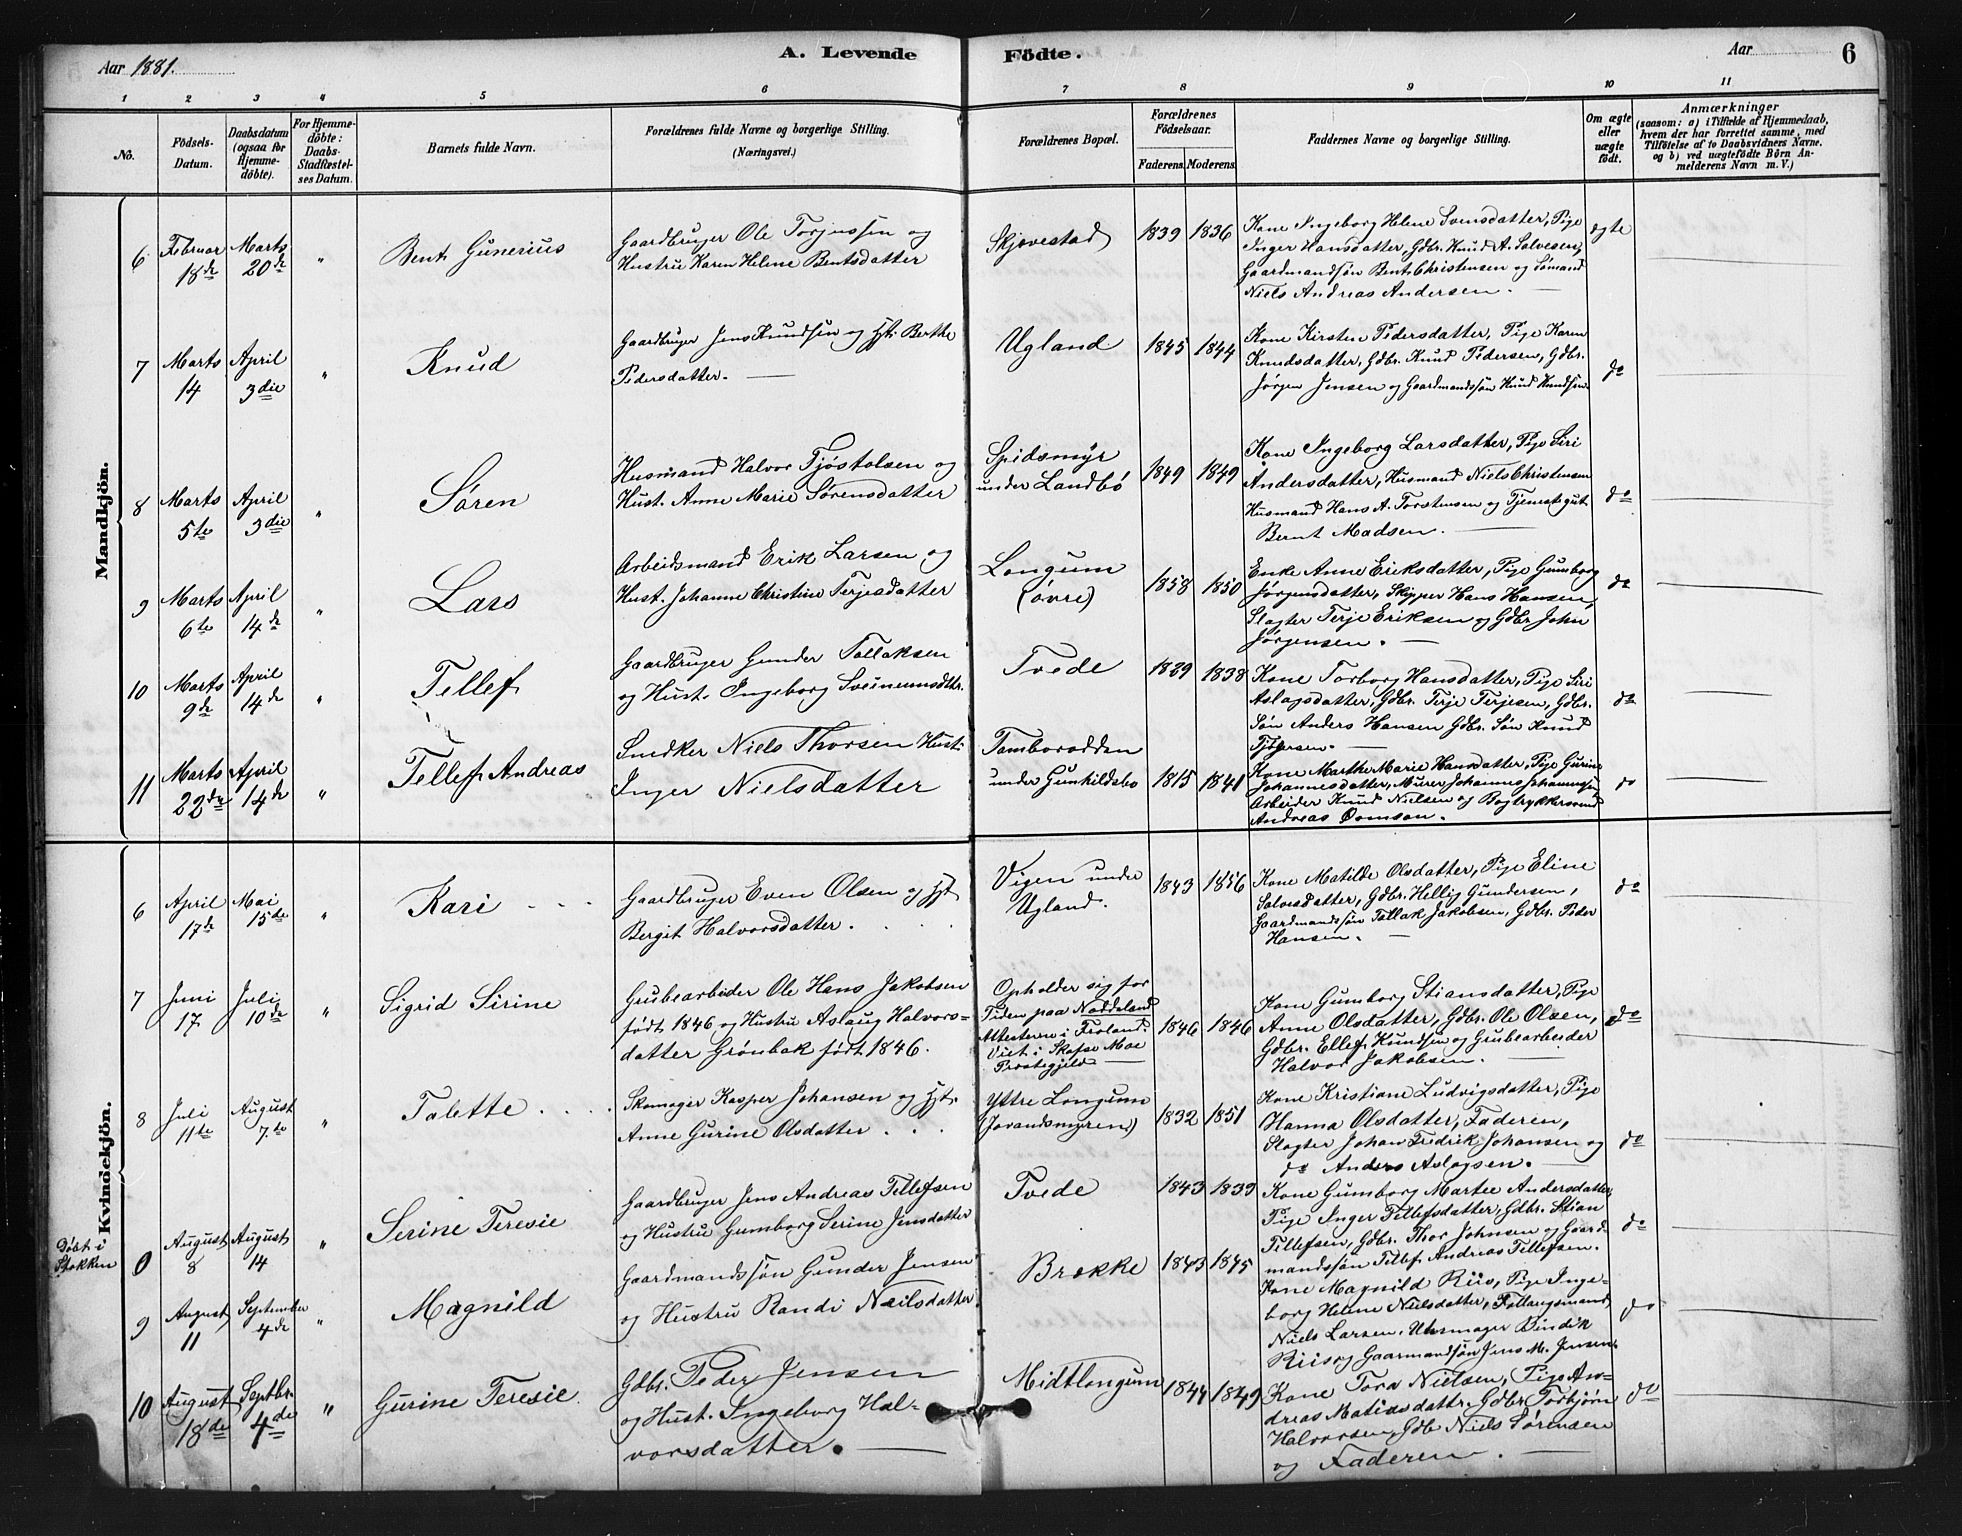 Aar 1881.
A. Levende
Födte.
Aar
6
1 2 3 4 5 6 7 8 9 10 11
No.
Födsels-
Datum.
Daabsdatum
(ogsaa for
Hjemme-
döbte).
For Hjemme-
döbte:
Daabs-
Stadfæstel-
ses Datum.
Barnets fulde Navn.
Forældrenes fulde Navne og borgerlige Stilling.
(Næringsvei.)
Forældrenes Bopæl.
Forældrenes
Födselsaar.
Faderens.
Moderens.
Faddernes Navne og borgerlige Stilling.
Om ægte
eller
uægte
født.
Anmærkninger
(saasom: a) i Tilfælde af Hjemmedaab,
hvem der har forrettet samme, med
Tilföielse af to Daabsvidners Navne.
og b) ved uægtefödte Börn An-
melderens Navn m. V.)
Mandkjön.
6
Februar
18de
Marts
20de
"
Bent Gunerius
Gaardbruger Ole Torjussen og
Hustru Karen Helene Bentsdatter
Skjævestad
1839
1836
Kone Ingeborg Helene Svensdatter, Pige
Inger Hansdatter, Gdbr. Knud A. Salvesen,
Gaardmandssøn Bent Christensen og Sømand
Niels Andreas Andersen.
ægte
7
Marts
14
April
3die
"
Knud
Gaardbruger Jens Knudsen og Hst. Berthe
Pedersdatter.
Ugland
1845
1844
Kone Kirsten Pedersdatter, Pige Karen
Knudsdatter, Gdbr. Knud Pedersen, Gdbr.
Jørgen Jensen og Gaardmandssøn Knud Knudsen
do
8
Marts
5te
April
3die
"
Søren
Husmand Halvor Tjøstolsen og
Hust. Anne Marie Sørensdatter
Spidsmyr
under Landbø
1849
1849
Kone Ingeborg Larsdatter, Pige Siri
Andersdatter, Husmand Niels Christensen
Husmand Hans A. Torstensen og Tjenestegut
Bernt Madsen.
do
9
Marts
6te
April
14de
"
Lars
Arbeidsmand Erik Larsen og
Hust. Johanne Christine Terjesdatter
Longum
(øvre)
1858
1850
Enke Anne Eriksdatter, Pige Gumborg
Jørgensdatter, Skipper Hans Hansen,
Slagter Terje Eriksen og Gdbr John
Jørgensen.
do
10
Marts
9de
April
14de
"
Tellef
Gaardbruger Gunder Tallaksen
og Hust. Ingeborg Sveinumsdtr.
Tvede
1829
1838
Kone Torborg Hansdatter, Pige Siri
Aslagsdatter, Gdbr. Terje Terjesen, Gdbr.
Søn Anders Hansen Gdbr. Søn Knud
do
11
Marts
22de
April
14de
"
Tellef Andreas
Snedker Niels Thorsen Hust.
Inger Nielsdatter
Tamborodden
under Gunhildsbo
1815
1841
Kone Marthe Marie Hansdatter, Pige Gurine
Johannesdatter, Murer Johannes Johannesen
Arbeider Knud Nielsen og Bogtrykkersvend
Andreas
do
Kvindekjön.
6
April
17de
Mai
15te
"
Kari
Gaardbruger Even Olsen og Hst
Bergit Halvorsdatter.
Vigen under
Ugland.
1843
1856
Kone Matilde Olsdatter, Pige Eline
Salvesdatter, Gdbr. Hellig Gundersen,
Gaardmandssøn Tallak Jakobsen, Gdbr. Peder
Hansen.
do
7
Juni
17
Juli
10de
"
Sigrid Sirine
Grubearbeider Ole Hans Jakobsen
født 1846 og Hustru Aslaug Halvors=
datter Grønbæk født 1846.
Opholder sig for
Tiden paa Nøddeland
Attesterne i Froland.
Viet i Skafse Moe
Præstegjeld
1846
1846
Kone Gumborg Stiansdatter, Pige
Anne Olsdatter, Gdbr. Ole Olsen,
Gdbr. Ellef Knudsen og Grubearbeider
Halvor Jakobsen.
do
8
Juli
11te
August
7te
"
Talette
Skomager Kasper Johansen og Hst.
Anne Gurine Olsdatter
Yttre Longum
(Jorandsmyren)
1832
1851
Kone Kristiane Ludvigsdatter, Pige
Hanna Olsdatter, Faderen,
Slagter Johan Fredrik Johansen og
do Anders Aslagsen.
do
Døbt i
Stokken
0
August
8
August
14
"
Serine Teresie
Gaardbruger Jens Andreas Tellefsen
og Hustru Gumborg Serine Jensdatter
Tvede
1843
1833
Kone Gumborg Martee Andersdatter
Pige Inger Tellefsdatter, Gdbr. Stian
Tellefsen, Gdbr. Thor Johnsen og Gaard-
mandssøn Tellef Andreas Tellefsen.
do
9
August
11
September
4de
"
Magnild
Gaardmandssøn Gunder Jensen
og Hustru Randi Neilsdatter
Brække
1843
1845
Kone Magnild Riis, Pige Inge-
borg Helene Nielsdatter, Følaugsmand
Niels Larsen, Uhrmager Bindik
Riis og Gaarmandssøn Jens M. Jensen
do
10
August
18de
Septbr.
4de
"
Gurine Teresie
Gdbr. Peder Jensen
og Hust. Ingeborg Hal-
vorsdatter.
Midtlongum
1844
1849
Kone Tora Nielsen, Pige An-
dreas Matiasdattr. Gdbr Torbjørn
Halvorsen, Gdb Niels Sørensen
og Faderen.
do